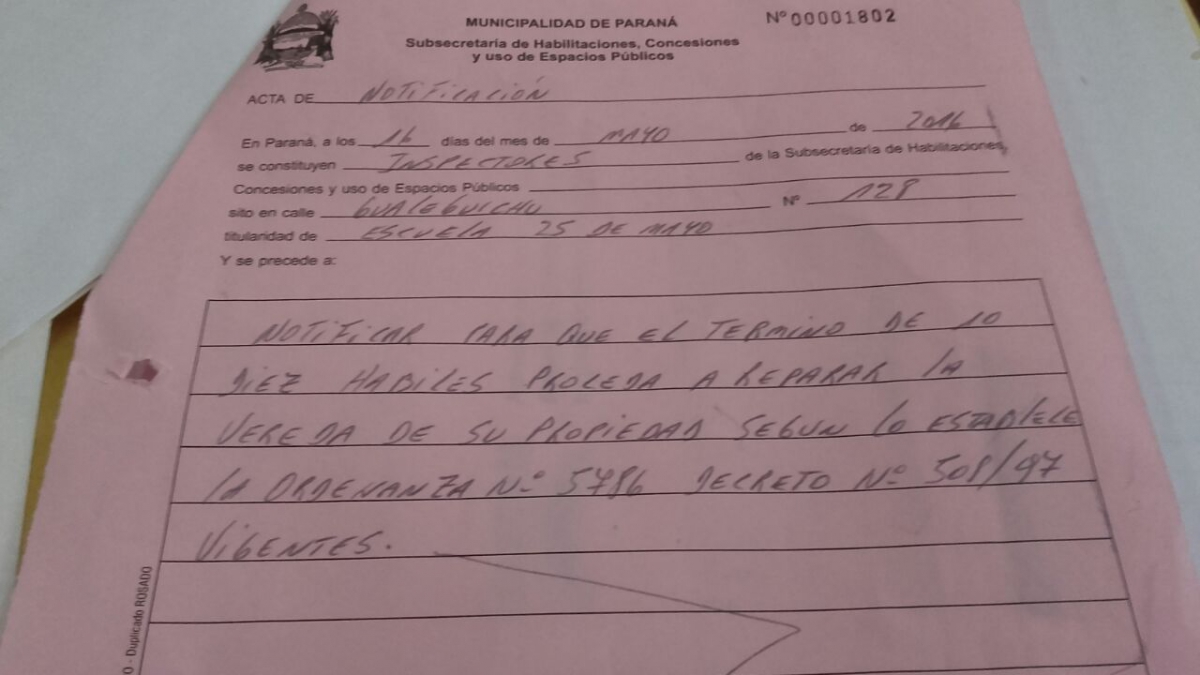 MUNICIPALIDAD DE PARANÁ
Nº 00001802
Subsecretaría de Habilitaciones, Concesiones
y uso de Espacios Públicos
ACTA DE NOTIFICACIÓN
En Paraná, a los 16 días del mes de MAYO de 2016
se constituyen INSPECTORES de la Subsecretaría de Habilitaciones,
Concesiones y uso de Espacios Públicos
sito en calle GUALEGUICHU Nº 128
titularidad de ESCUELA 25 DE MAYO
Y se precede a:
NOTIFICAR PARA QUE EL TERMINO DE 10
DIEZ HABILES PROCEDA A REPARAR LA
VEREDA DE SU PROPIEDAD SEGUN LO ESTABLECE
LA ORDENANZA Nº 5786 DECRETO Nº 508/97
VIGENTES.
O - Duplicado ROSADO